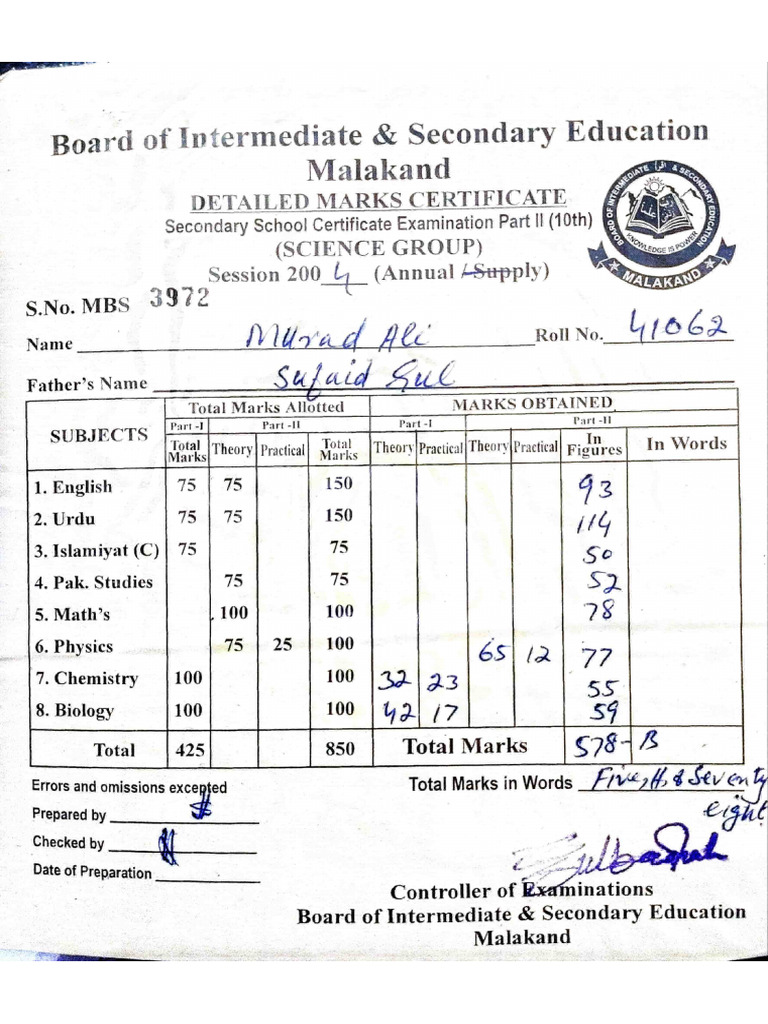 Board of Intermediate & Secondary Education
Malakand
DETAILED MARKS CERTIFICATE
Secondary School Certificate Examination Part II (10th)
(SCIENCE GROUP)
Session 2004 (Annual /Supply)
BOARD OF INTERMEDIATE & SECONDARY EDUCATION
KNOWLEDGE IS POWER
MALAKAND
S.No. MBS 3972
Name Murad Ali Roll No. 41062
Father's Name Sufaid Gul
SUBJECTS Total Marks Allotted MARKS OBTAINED
Part -I Part -II Part -I Part -II
Total Marks Theory Practical Total Marks Theory Practical Theory Practical In Figures In Words
1. English 75 75 150 93
2. Urdu 75 75 150 114
3. Islamiyat (C) 75 75 50
4. Pak. Studies 75 75 52
5. Math's 100 100 78
6. Physics 75 25 100 65 12 77
7. Chemistry 100 100 32 23 55
8. Biology 100 100 42 17 59
Total 425 850 Total Marks 578-B
Errors and omissions excepted
Total Marks in Words Five, H, & Seventy
eight
Prepared by
Checked by
Date of Preparation
Controller of Examinations
Board of Intermediate & Secondary Education
Malakand